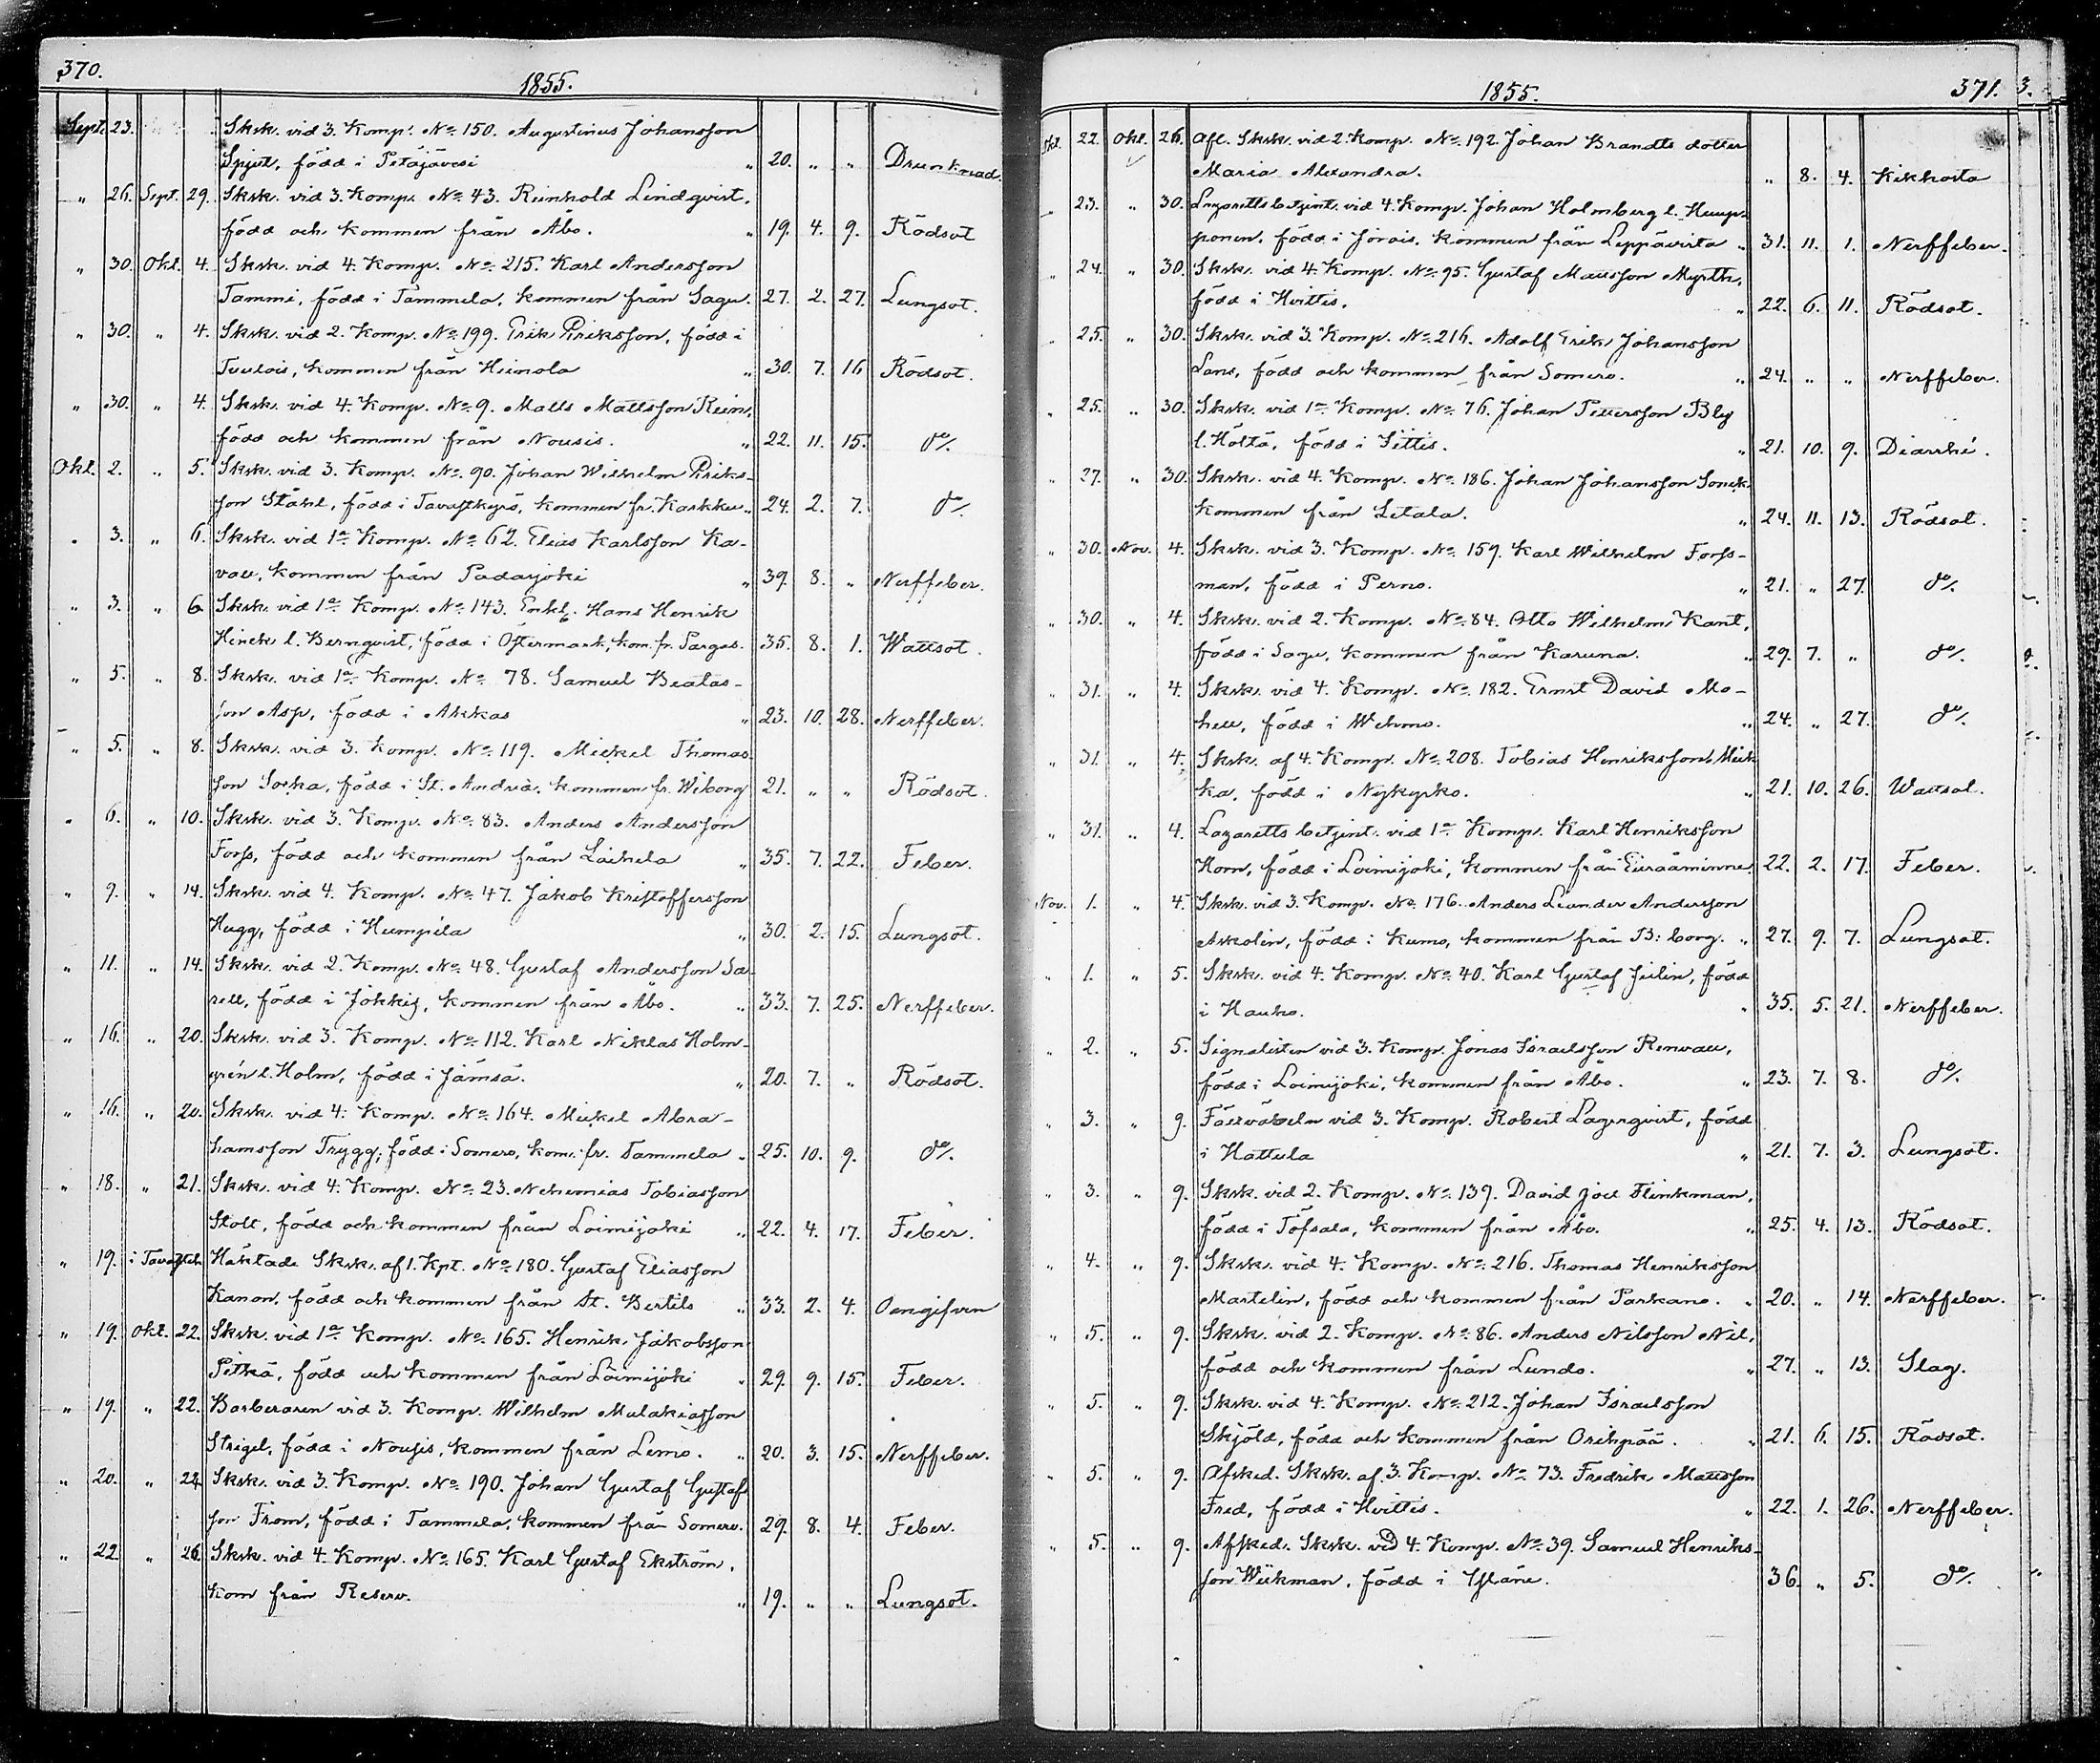 370.
1855.
Sept. 23. Sksk. vid 3. Komp. No 150. Augustinus Johansson
Spjut, född i Petäjävesi " 20. " " Drunknad.
" 26. Sept. 29. Sksk. vid 3. Komp. No 43. Reinhold Lindqvist,
född och kommen från Åbo. " 19. 4. 9. Rödsot
" 30. Okt. 4. Sksk. vid 4. Komp. No 215. Karl Andersson
Tammi, född i Tammela, kommen från Sagu. 27. 2. 27. Lungsot.
" 30. " 4. Sksk. vid 2. Komp. No 199. Erik Eriksson, född i
Tuulois, kommen från Heinola " 30. 7. 16 Rödsot.
" 30. " 4. Sksk. vid 4. Komp. No 9. Matts Mattsson Rein,
född och kommen från Nousis. " 22. 11. 15. do/.
Okt. 2. " 5. Sksk. vid 3. Komp. No 90. Johan Wilhelm Eriks-
son Ståhl, född i Tavastkyrö, kommen fr. Karkku. 24. 2. 7. do/.
" 3. " 6. Sksk. vid 1a Komp. No 62. Elias Karlsson Ka-
vall, kommen från Padasjoki " 39. 8. " Nerffeber.
" 3. " 6 Sksk. vid 1a Komp. No 143. Enkl. Hans Henrik
Hinck l. Bernqvist, född i Östermark, kom. fr. Pargas. 35. 8. 1. Wattsot.
" 5. " 8. Sksk. vid 1a Komp. No 78. Samuel Beatas-
son Asp, född i Akkas " 23. 10. 28. Nerffeber.
" 5. " 8. Sksk. vid 3. Komp. No 119. Mickel Thomas-
son Sorka, född i St. Andreæ, kommen fr. Wiborg 21. " " Rödsot.
" 6. " 10. Sksk. vid 3. Komp. No 83. Anders Andersson
Forss, född och kommen från Laihela " 35. 7. 22. Feber.
" 9. " 14. Sksk. vid 4. Komp. No 47. Jakob Kristoffersson
Hugg, född i Humpila " 30. 2. 15. Lungsot.
" 11. " 14. Sksk. vid 2. Komp. No 48. Gustaf Andersson Sa-
rell, född i Jokkis, kommen från Åbo. " 33. 7. 25. Nerffeber.
" 16. " 20. Sksk. vid 3. Komp. No 112. Karl Niklas Holm-
grén l. Holm, född i Jämsä. " 20. 7. " Rödsot.
" 16. " 20. Sksk. vid 4. Komp. No 164. Mickel Abra-
hamsson Trygg, född i Somero, kom. fr. Tammela " 25. 10. 9. do/.
" 18. " 21. Sksk. vid 4. Komp. No 23. Nehemias Tobiasson
Stolt, född och kommen från Loimijoki " 22. 4. 17. Feber.
" 19. i Tavasteh. Häktade Sksk. af 1. Kpt. No 180. Gustaf Eliasson
Kanon, född och kommen från St. Bertils " 33. 2. 4. Oangifven
" 19. Okt. 22. Sksk. vid 1a Komp. No 165. Henrik Jakobsson
Pitkä, född och kommen från Loimijoki " 29. 9. 15. Feber.
" 19. " 22. Barberaren vid 3. Komp. Wilhelm Malakiasson
Strigel, född i Nousis, kommen från Lemo. " 20. 3. 15. Nerffeber.
" 20. " 24 Sksk. vid 3. Komp. No 190. Johan Gustaf Gustafs-
son From, född i Tammela, kommen från Somero. 29. 8. 4. Feber.
" 22. " 26. Sksk. vid 4. Komp. No 165. Karl Gustaf Ekström,
kom från Reserv. " 19. " " Lungsot.
1855.
371.
Okt. 22. Okt. 26. Afl. Sksk. vid 2. Komp. No 192. Johan Brandts dotter
Maria Alexandra. " 8. 4. Kikhosta
" 23. " 30. Lazaretts betjent. vid 4. Komp. Johan Holmberg l. Hemp-
ponen, född i Jorois, kommen från Leppävirta " 31. 11. 1. Nerffeber.
" 24. " 30. Sksk. vid 4. Komp. No 95. Gustaf Mattsson Myrth,
född i Hvittis. " 22. 6. 11. Rödsot.
" 25. " 30. Sksk. vid 3. Komp. No 216. Adolf Erik Johansson
Lans, född och kommen från Somero. " 24. " " Nerffeber.
" 25. " 30. Sksk. vid 1a Komp. No 76. Johan Pettersson Bly
l. Höltä, född i Sittis. " 21. 10. 9. Diarrhé.
" 27. " 30. Sksk. vid 4. Komp. No 186. Johan Johansson Sonck
kommen från Letala. " 24. 11. 13. Rödsot.
" 30. Nov. 4. Sksk. vid 3. Komp. No 159. Karl Wilhelm Forss-
man, född i Perno. " 21. " 27. do/.
" 30. " 4. Sksk. vid 2. Komp. No 84. Otto Wilhelm Kant,
född i Sagu, kommen från Karuna. " 29. 7. " do/.
" 31. " 4. Sksk. vid 4. Komp. No 182. Ernst David Mo-
hell, född i Wehmo. " 24. " 27. do/.
" 31. " 4. Sksk. af 4. Komp. No 208. Tobias Henriksson Muik-
ka, född i Nykyrko. " 21. 10. 26. Wattsot.
" 31. " 4. Lazaretts betjent. vid 1a Komp. Karl Henriksson
Horn, född i Loimijoki, kommen från Euraåminne 22. 2. 17. Feber.
Nov. 1. " 4. Sksk. vid 3. Komp. No 176. Anders Leander Andersson
Askolin, född i Kumo, kommen från B:borg. " 27. 9. 7. Lungsot.
" 1. " 5. Sksk. vid 4. Komp. No 40. Karl Gustaf Julin, född
i Hauho. " 35. 5. 21. Nerffeber.
" 2. " 5. Signalisten vid 3. Komp. Jonas Israelsson Renvall,
född i Loimijoki, kommen från Åbo. " 23. 7. 8. do/.
" 3. " 9. Fältväbeln vid 3. Komp. Robert Lagerqvist, född
i Hattula " 21. 7. 3. Lungsot.
" 3. " 9. Sksk. vid 2. Komp. No 139. David Joel Flinkman,
född i Töfsala, kommen från Åbo. " 25. 4. 13. Rödsot.
" 4. " 9. Sksk. vid 4. Komp. No 216. Thomas Henriksson
Martelin, född och kommen från Parkano. " 20. " 14. Nerffeber.
" 5. " 9. Sksk. vid 2. Komp. No 86. Anders Nilsson Nil,
född och kommen från Lundo. " 27. " 13. Slag.
" 5. " 9. Sksk. vid 4. Komp. No 212. Johan Israelsson
Skjöld, född och kommen från Orihpää. " 21. 6. 15. Rödsot.
" 5. " 9. Afsked. Sksk. af 3. Komp. No 73. Fredrik Mattsson
Fred, född i Hvittis. " 22. 1. 26. Nerffeber.
" 5. " 9. Afsked. Sksk. vid 4. Komp. No 39. Samuel Henriks-
son Wikman, född i Yläne. 36. " 5. do/.